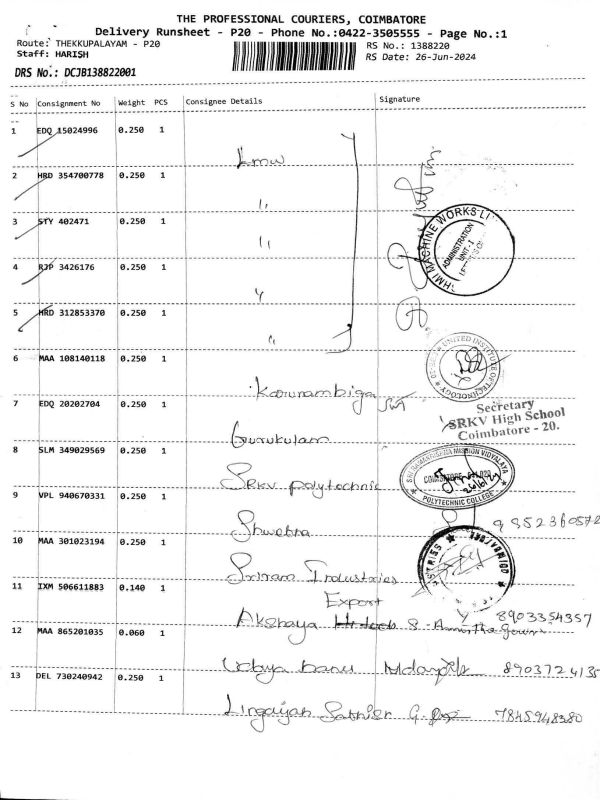 THE PROFESSIONAL COURIERS, COIMBATORE
Delivery Runsheet - P20 - Phone No.:0422-3505555 - Page No.:1
Route: THEKKUPALAYAM - P20
RS No.: 1388220
Staff: HARISH
RS Date: 26-Jun-2024
DRS No.: DCJB138822001
S No Consignment No Weight PCS Consignee Details Signature
1 EDQ 15024996 0.250 1
Lmw
2 HRD 354700778 0.250 1
"
3 STY 402471 0.250 1
"
LAKSHMI MACHINE WORKS LI
ADMINISTRATION
UNIT-I
4 RJP 3426176 0.250 1
"
5 HRD 312853370 0.250 1
"
6 MAA 108140118 0.250 1
UNITED INSTITUTE OF TECHNOLOGY
7 EDQ 20202704 0.250 1
Gurukulam
Secretary
SRKV High School
Coimbatore - 20.
8 SLM 349029569 0.250 1
SRKV polytechnic
SRI RAMAKRISHNA MISSION VIDYALAYA
POLYTECHNIC COLLEGE
9 VPL 940670331 0.250 1
Shwetha
10 MAA 301023194 0.250 1
Sriram Industries
11 IXM 506611883 0.140 1
Export
Akshaya 8903354357
12 MAA 865201035 0.060 1
Udaya banu 8903724135
13 DEL 730240942 0.250 1
Lingaiyah Sathish 7845948380